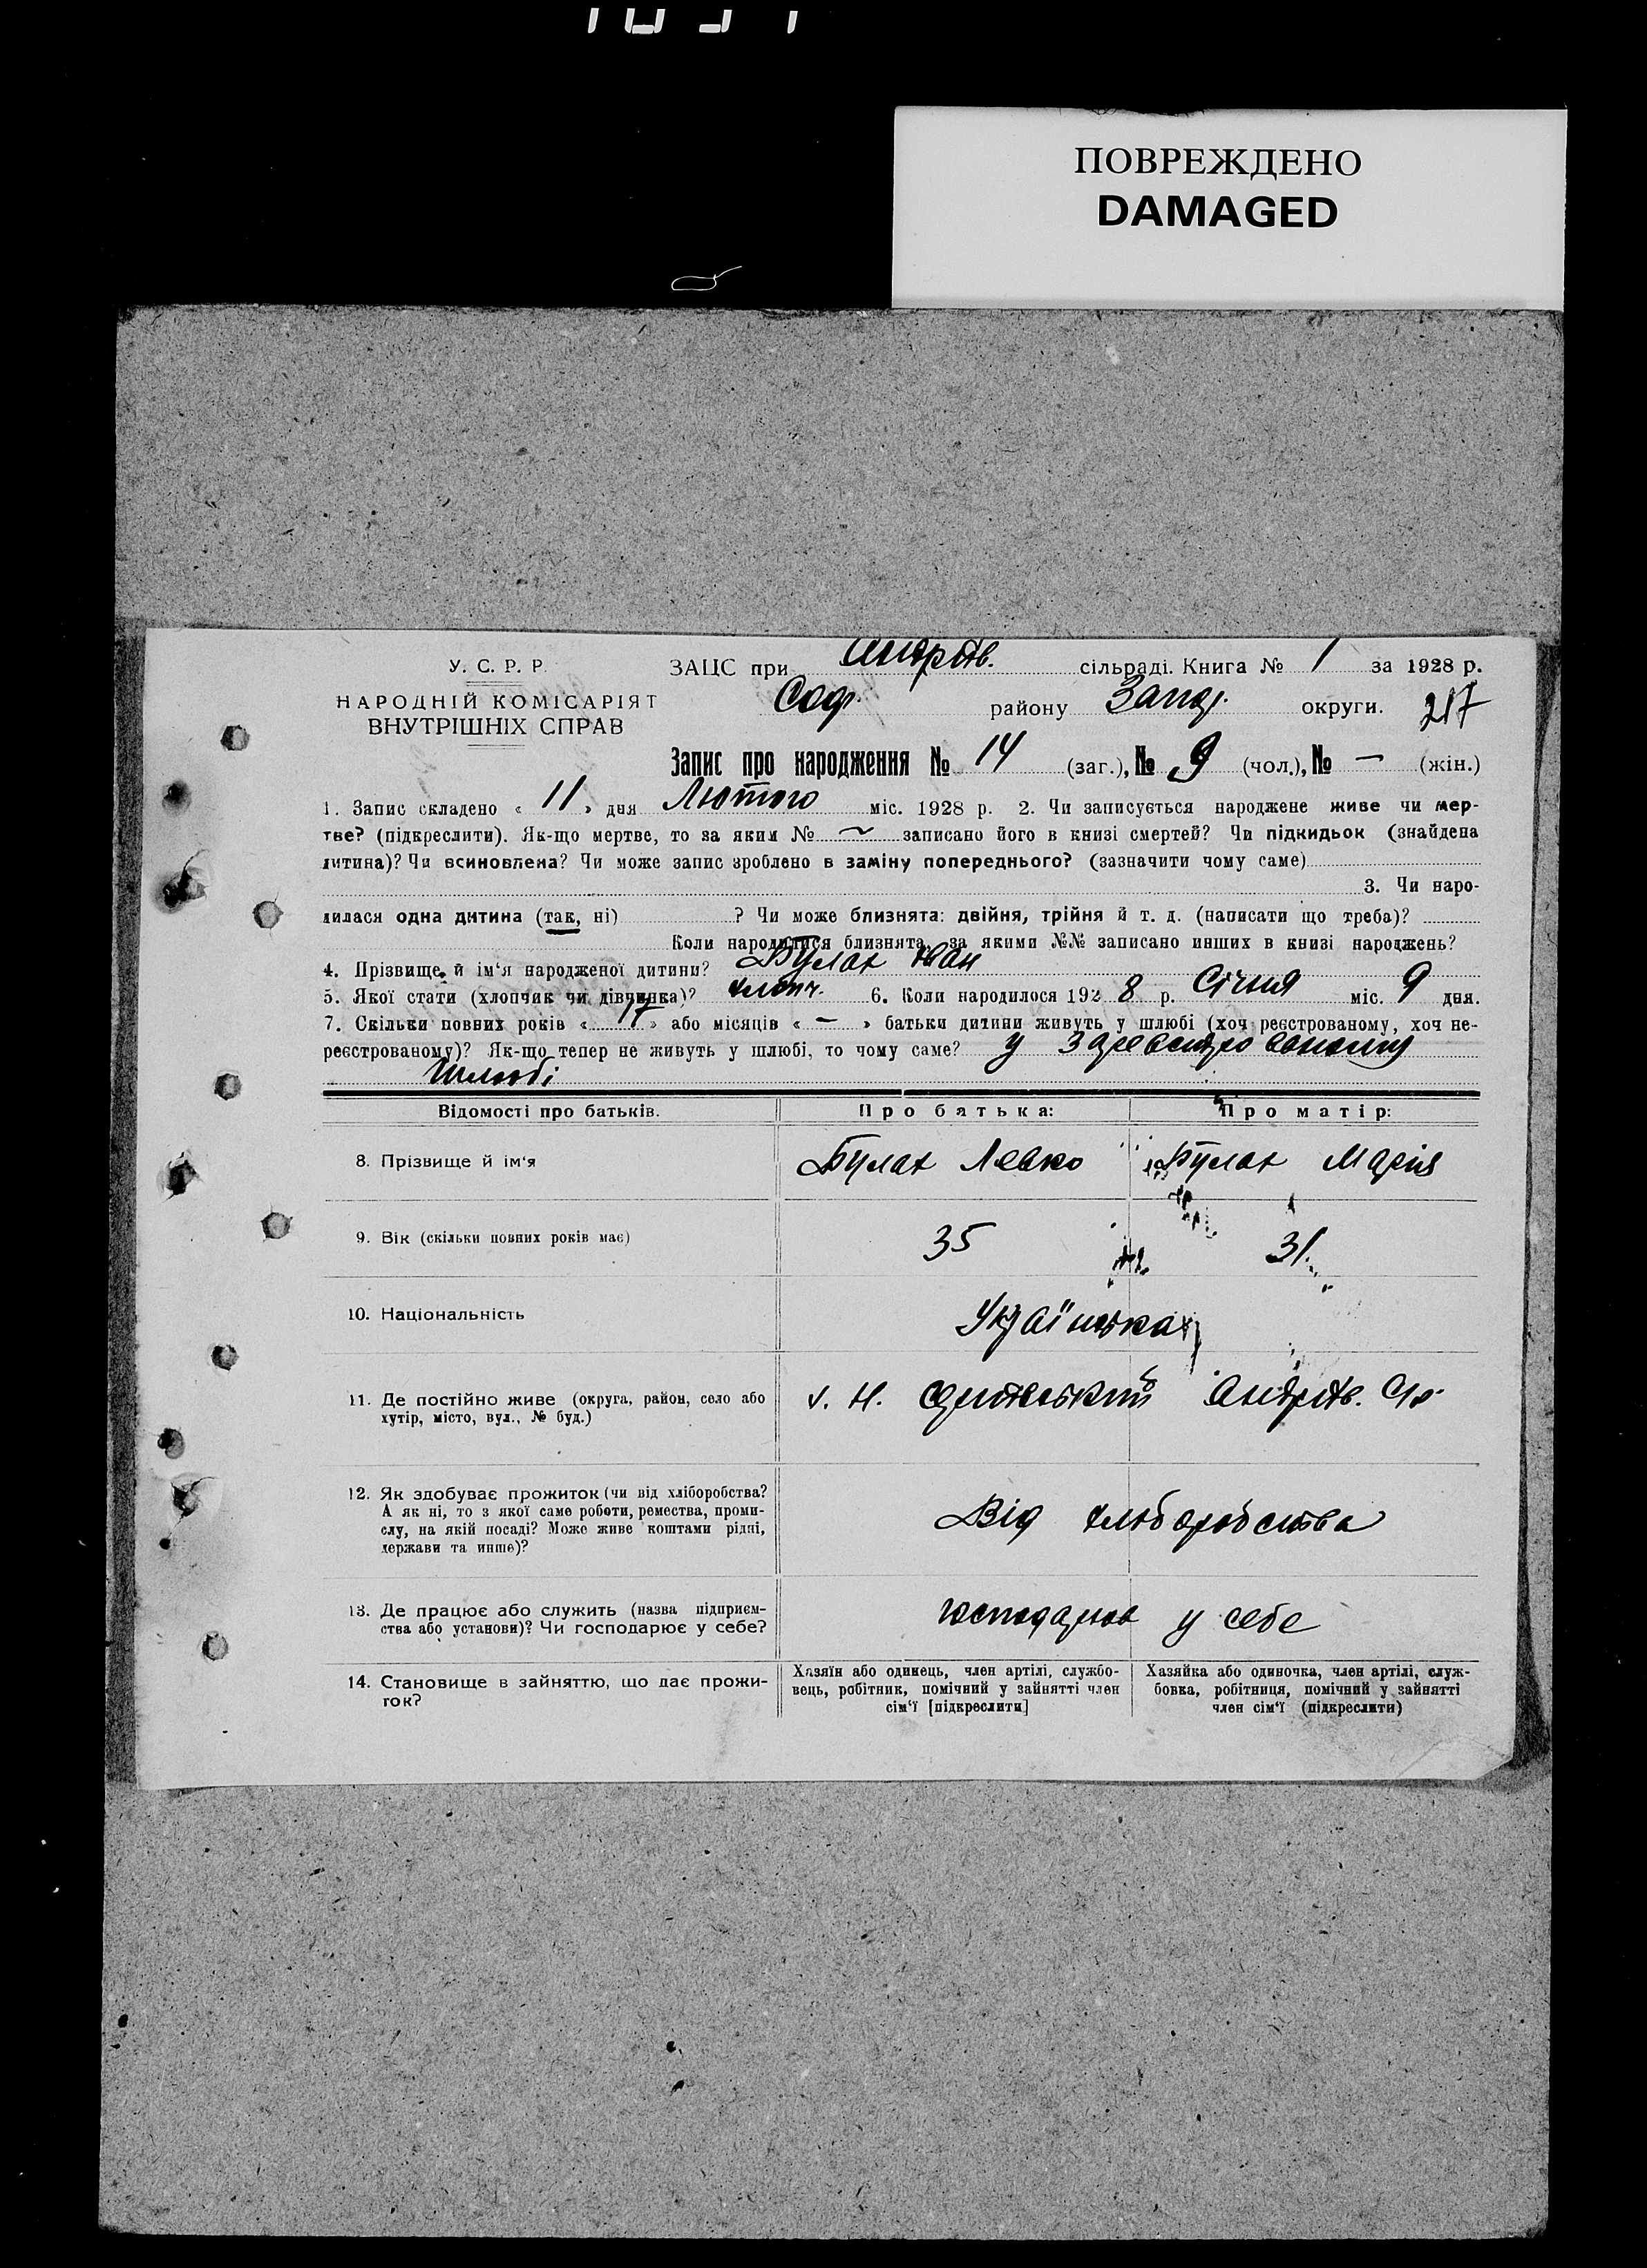 ПОВРЕЖДЕНО
DAMAGED
У. С. Р. Р.
НАРОДНІЙ КОМІСАРІЯТ
ВНУТРІШНІХ СПРАВ
ЗАЦС при Андріїв. сільраді. Книга № 1 за 1928 р.
Соф. району Запор. округи. 217
Запис про народження № 14 (заг.), № 9 (чол.), № — (жін.)
1. Запис складено « 11 » дня Лютого міс. 1928 р. 2. Чи записується народжене живе чи мер-
тве? (підкреслити). Як-що мертве, то за яким № ~ записано його в книзі смертей? Чи підкидьок (знайдена
дитина)? Чи всиновлена? Чи може запис зроблено в заміну попереднього? (зазначити чому саме)
3. Чи наро-
дилася одна дитина (так, ні) ? Чи може близнята: двійня, трійня й т. д. (написати що треба)?
Коли народилися близнята, за якими №№ записано инших в книзі народжень?
4. Прізвище й ім‘я народженої дитини? Булах Іван
5. Якої стати (хлопчик чи дівчинка)? хлопч. 6. Коли народилося 1928 р. Січня міс. 9 дня.
7. Скільки повних років « 17 » або місяців « — » батьки дитини живуть у шлюбі (хоч реєстрованому, хоч не-
реєстрованому)? Як-що тепер не живуть у шлюбі, то чому саме? у
Шлюбі
Відомості про батьків. Про батька: Про матір:
8. Прізвище й ім‘я Булах Левко Булах Марія
9. Вік (скільки повних років має) 35 31.
10. Національність Українська
11. Де постійно живе (округа, район, село або
хутір, місто, вул., № буд.) Андріїв.
12. Як здобуває прожиток (чи від хліборобства?
А як ні, то з якої саме роботи, ремества, проми-
слу, на якій посаді? Може живе коштами рідні,
держави та инше)? Від хлюборобства
13. Де працює або служить (назва підприєм-
ства або установи)? Чи господарює у себе? у себе
14. Становище в зайняттю, що дає прожи-
ток?
Хазяїн або одинець, член артілі, службо-
вець, робітник, помічний у зайнятті член
сім‘ї [підкреслити]
Хазяйка або одиночка, член артілі, служ-
бовка, робітниця, помічний у зайнятті
член сім‘ї (підкреслити)